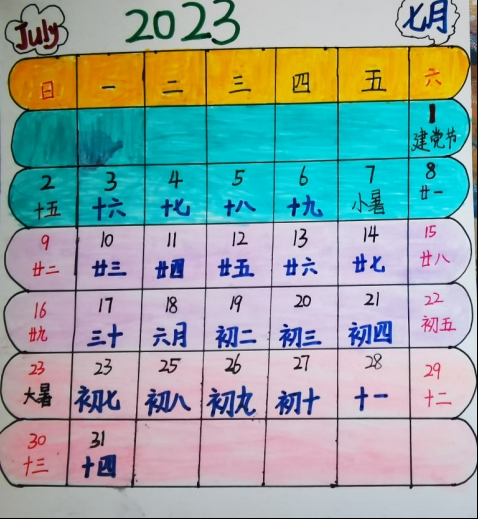 July 2023 七月
日 一 二 三 四 五 六
1
建党节
2 3 4 5 6 7 8
十五 十六 十七 十八 十九 小暑 廿一
9 10 11 12 13 14 15
廿二 廿三 廿四 廿五 廿六 廿七 廿八
16 17 18 19 20 21 22
廿九 三十 六月 初二 初三 初四 初五
23 23 25 26 27 28 29
大暑 初七 初八 初九 初十 十一 十二
30 31
十三 十四